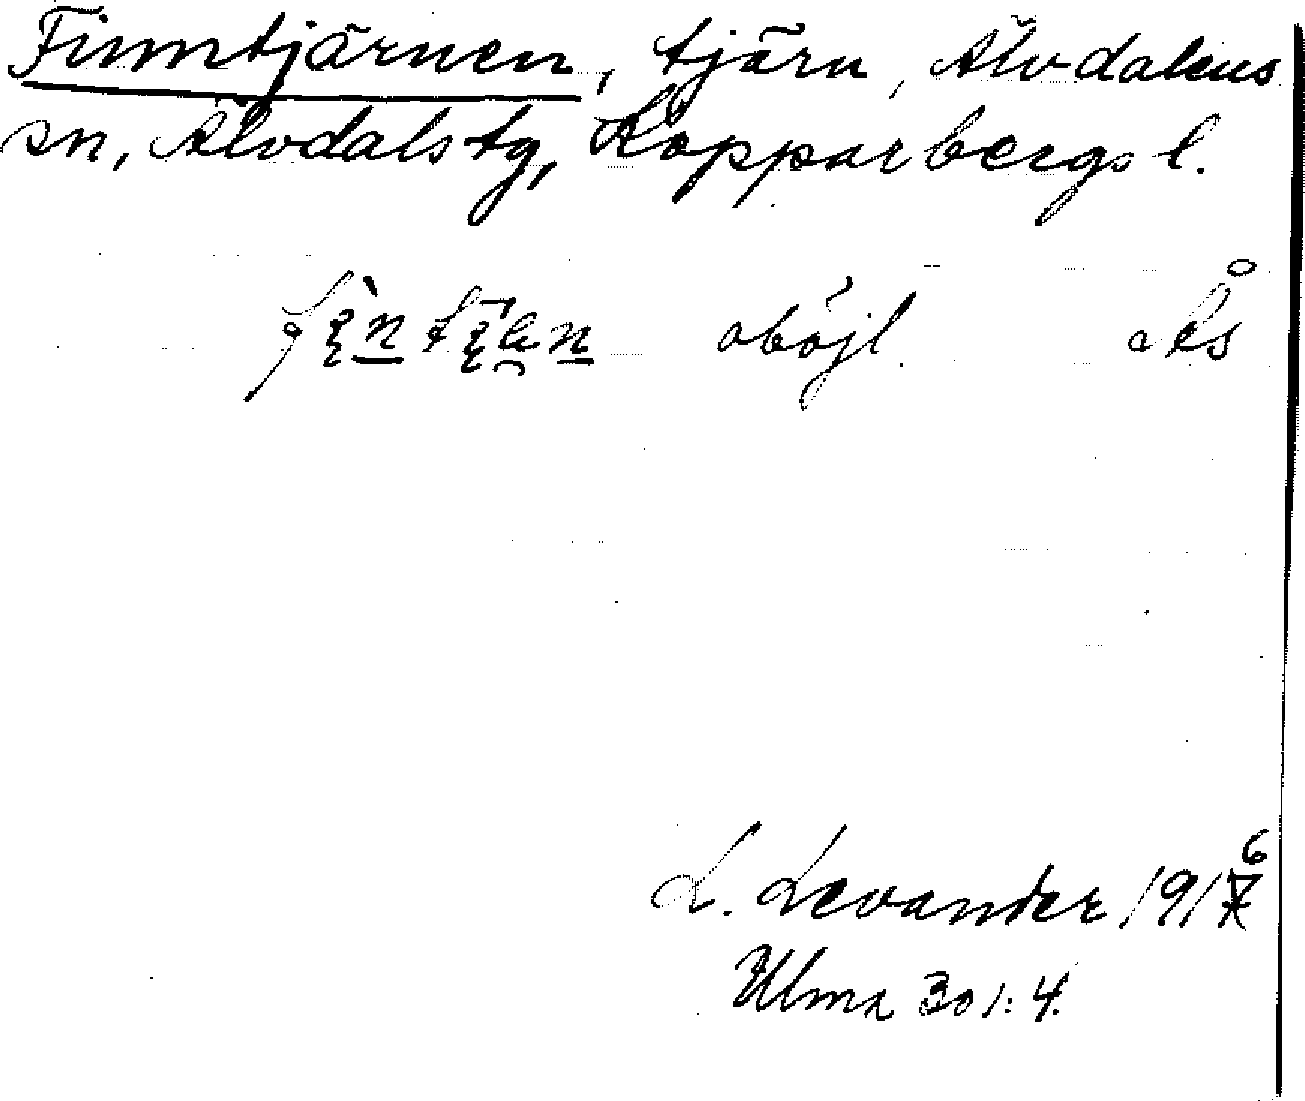 Finntjärnen, tjärn, Älvdalens
sn, Älvdals tg, Kopparbergs l.
oböjl. Ås
L. Levander 1916
Ulma 301:4.